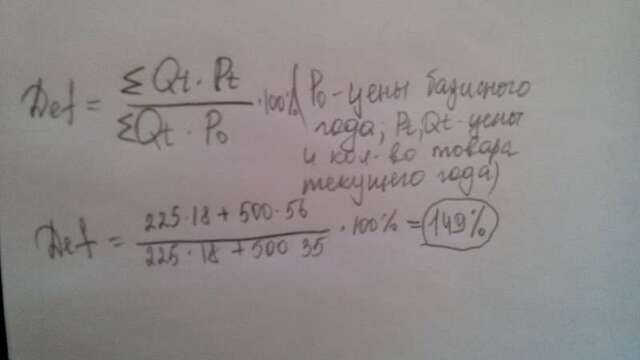 Def = ΣQt · Pt / ΣQt · Po · 100% (Po - цены базисного
года; Pt, Qt - цены
и кол-во товара
текущего года)
Def = 225 · 18 + 500 · 56 / 225 · 18 + 500 35 · 100% = 149%